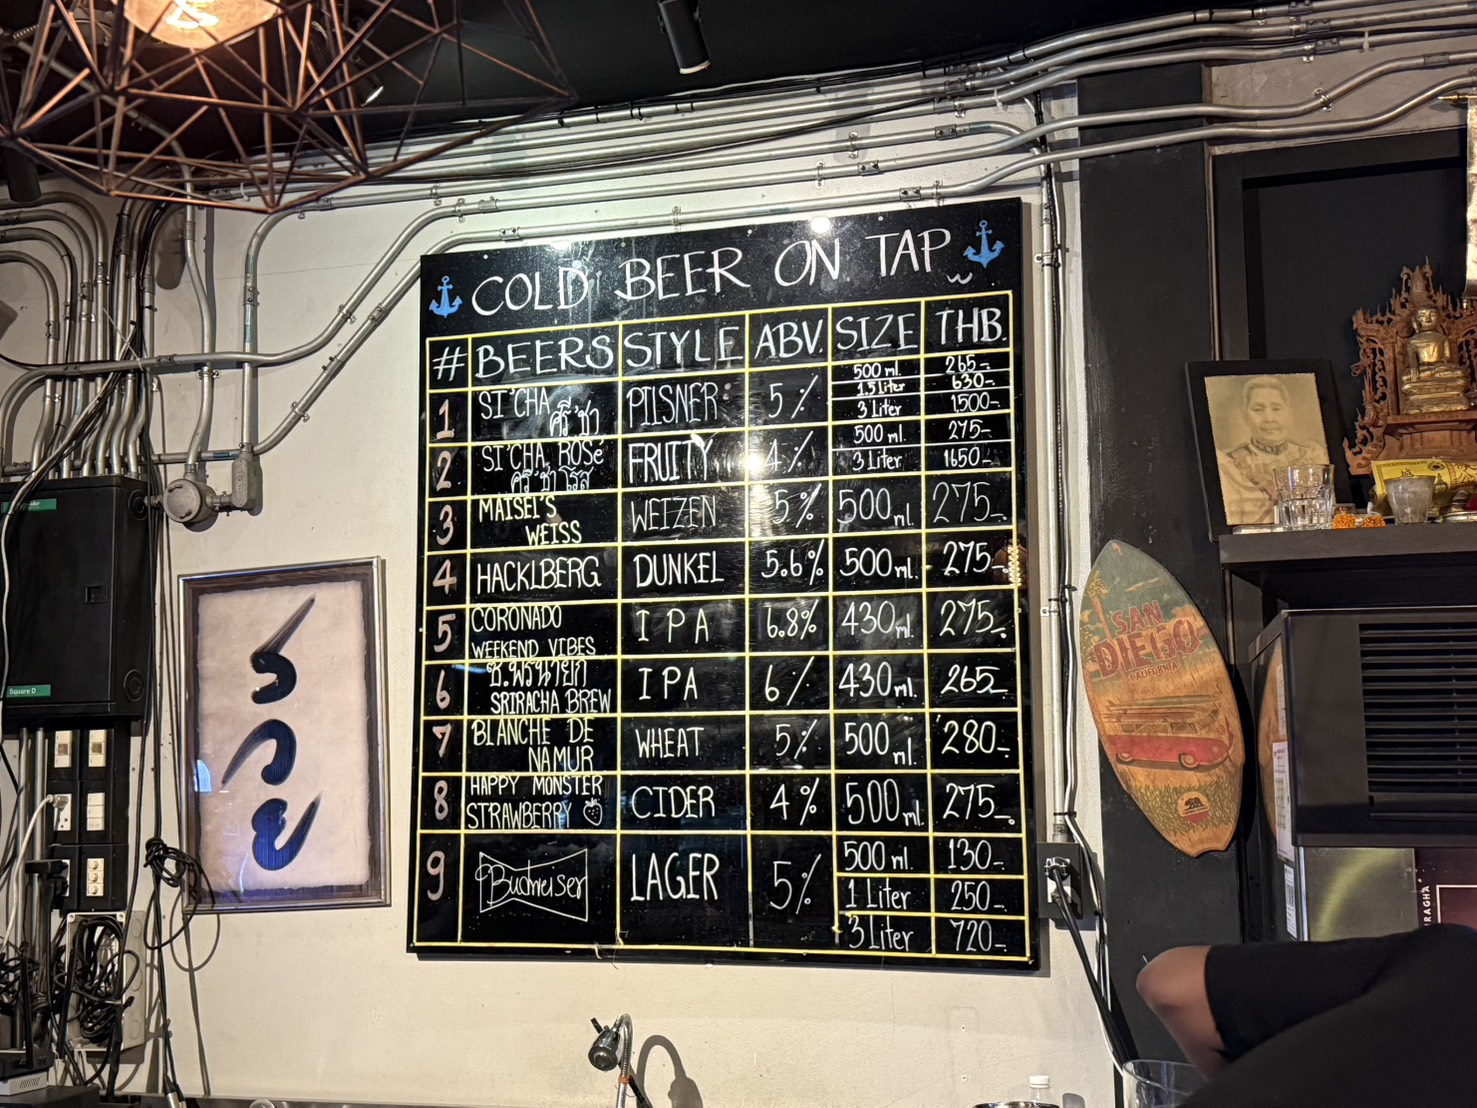 COLD BEER ON TAP
# BEERS STYLE ABV. SIZE THB.
1 SI'CHA ศรี'ชา PILSNER 5% 500 ml. 265-
1.5 Liter 630-
3 Liter 1500-
2 SI'CHA ROSé ศรี'ชา โรส FRUITY 4% 500 ml. 275-
3 Liter 1650-
3 MAISEL'S WEISS WEIZEN 5% 500 ml. 275-
4 HACKLBERG DUNKEL 5.6% 500 ml. 275-
5 CORONADO WEEKEND VIBES IPA 6.8% 430 ml. 275-
6 SRIRACHA BREW IPA 6% 430 ml. 265-
7 BLANCHE DE NAMUR WHEAT 5% 500 ml. 280-
8 HAPPY MONSTER STRAWBERRY CIDER 4% 500 ml. 275-
9 Budweiser LAGER 5% 500 ml. 130-
1 Liter 250-
3 Liter 720-
SAN
DIEGO
CALIFORNIA
Square D